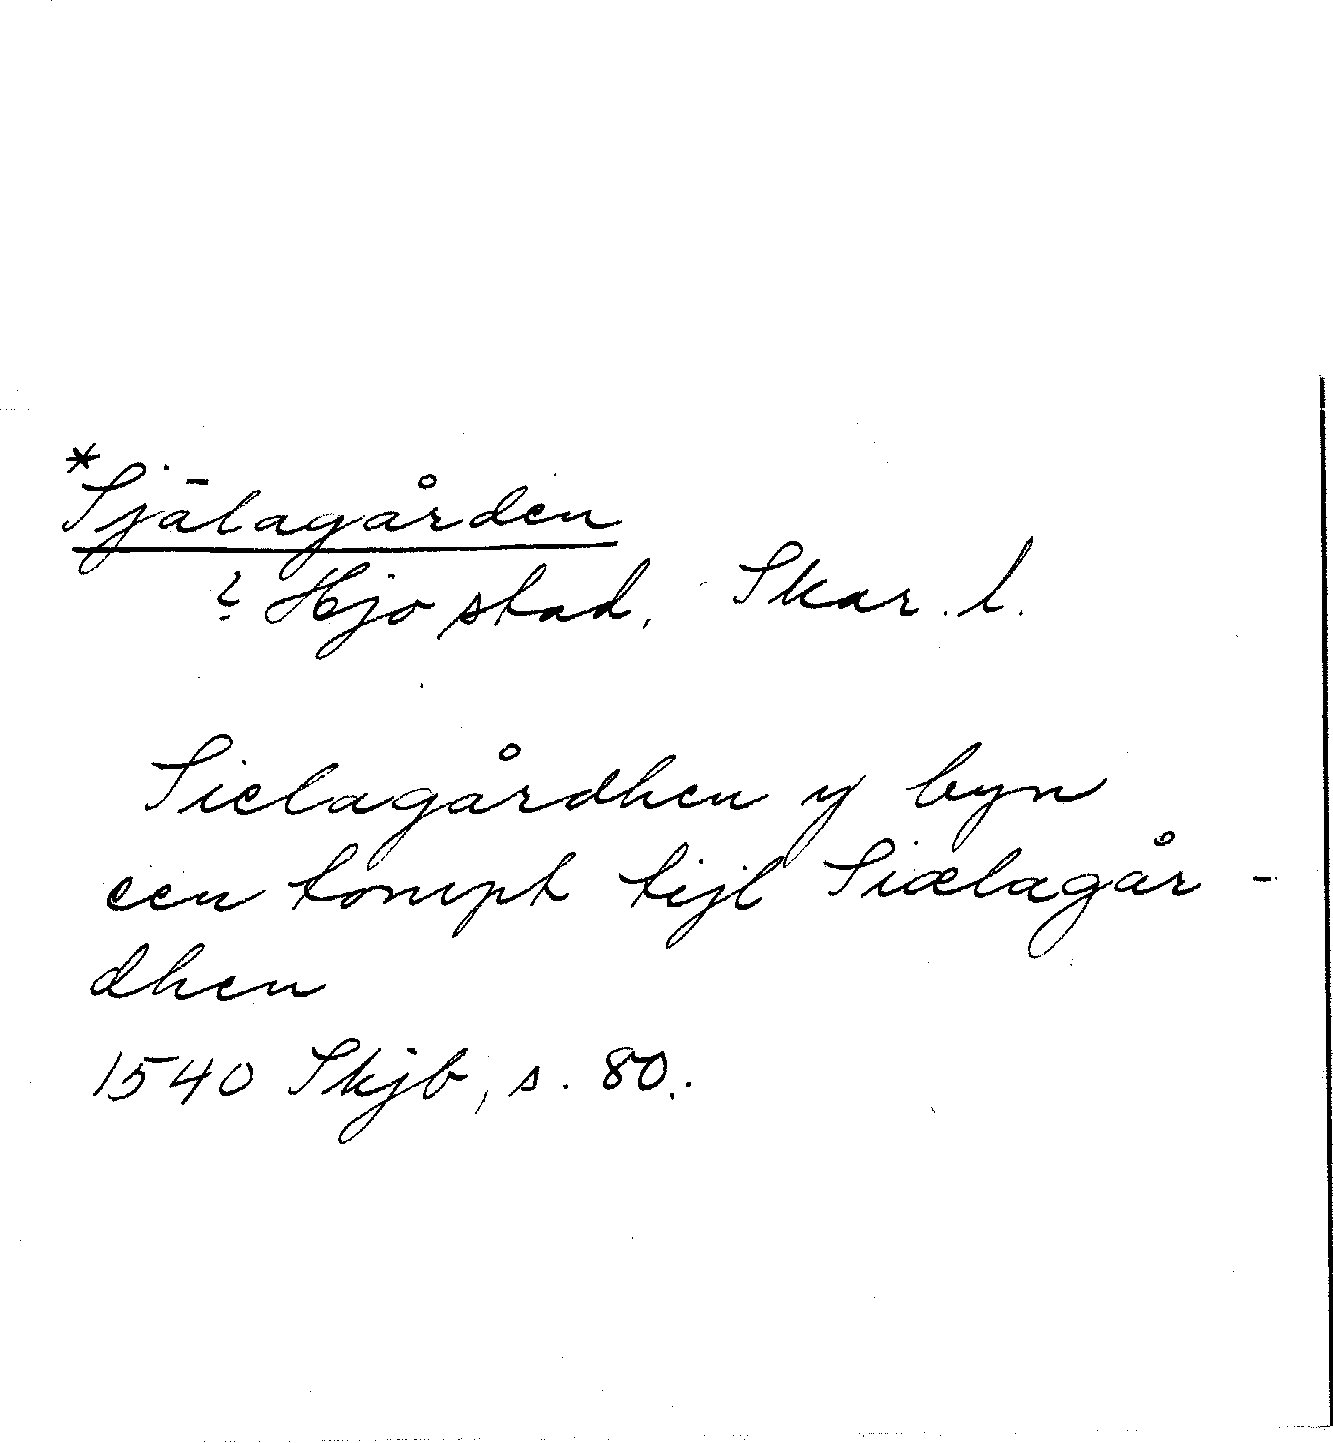 *Själagården
? Hjo stad, Skar. l.
Sielagårdhen y byn
een tompt tijl Siælagår-
dhen
1540 Skjb, s. 80.